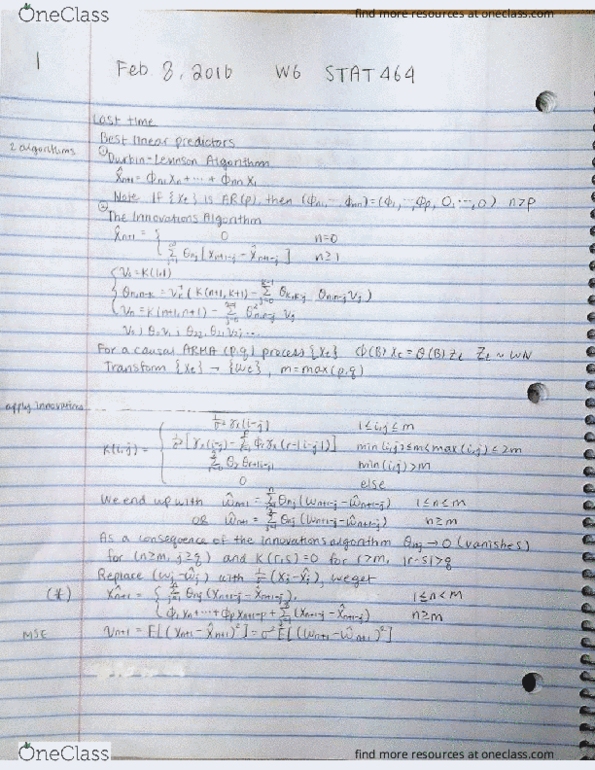 OneClass
find more resources at oneclass.com
1
Feb 8, 2016 W6 STAT 464
Last time
Best linear predictors
2 algorithms
① Durbin-Levinson Algorithm
X̂n+1 = Φn1 Xn + ... + Φnn X1
Note: If {Xt} is AR(p), then (Φn1, ... Φnn) = (Φ1, ..., Φp, 0, ..., 0) n>p
② The Innovations Algorithm
X̂n+1 = { 0 n=0
Σ θnj [Xn+1-j - X̂n+1-j] n≥1
{ V0 = K(1,1)
θn,n-k = (K(n+1, k+1) - Σ θk,k-j θn,n-j Vj)
Vn = K(n+1, n+1) - Σ θ²n,n-j Vj
For a causal ARMA (p,q) process {Xt} Φ(B) Xt = θ(B) Zt Zt ~ WN
Transform {Xt} → {Wt}, m = max(p,q)
apply innovations
K(i,j) = { 1/σ² γx(i-j) 1≤i,j≤m
1/σ² [γx(i-j) - Σ Φr γx(r-|i-j|)] min(i,j)≤m<max(i,j)≤2m
Σ θr θr+|i-j| min(i,j)>m
0 else
We end up with Ŵn+1 = Σ θnj (Wn+1-j - Ŵn+1-j) 1≤n<m
OR Ŵn+1 = Σ θnj (Wn+1-j - Ŵn+1-j) n≥m
As a consequence of the innovations algorithm θnj → 0 (vanishes)
for (n≥m, j≥q) and K(r,s) = 0 for r>m, |r-s|>q
Replace (Wj - Ŵj) with (Xj - X̂j), we get
(*) X̂n+1 = { Σ θnj (Xn+1-j - X̂n+1-j), 1≤n<m
Φ1 Xn + ... + Φp Xn+1-p + Σ (Xn+1-j - X̂n+1-j) n≥m
MSE Vn+1 = E[(Xn+1 - X̂n+1)²] = σ² E[(Wn+1 - Ŵn+1)²]
OneClass
find more resources at oneclass.com